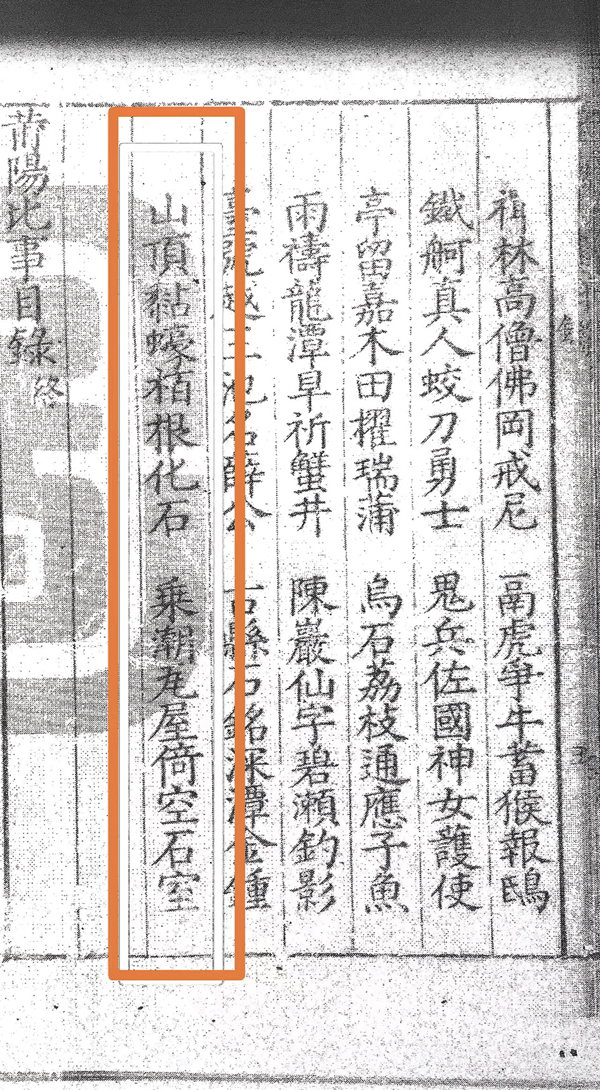 禪林高僧佛岡戒尼 鬲虎爭牛蓄猴報鴟
鐵舸真人蛟刀勇士 鬼兵佐國神女護使
亭留嘉木田櫂瑞蒲 烏石荔枝通應子魚
雨禱龍潭旱祈蟹井 陳巖仙字碧瀨釣影
臺號越王池名薛公 古縣石銘深潭金鍾
山頂黏蠔栢根化石 乗潮瓦屋倚空石室
莆陽比事目錄終